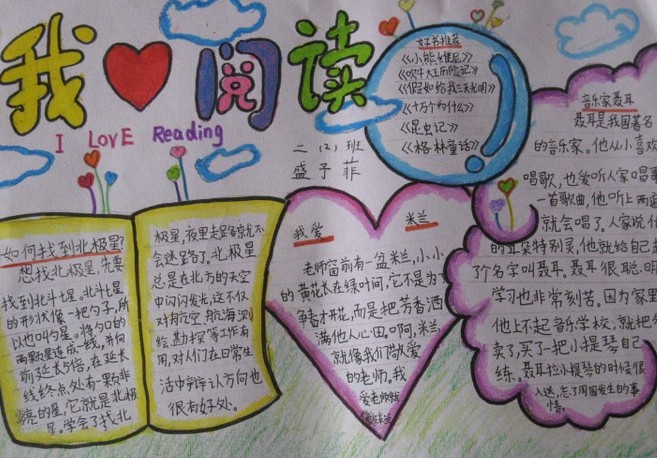 我 阅读
I LOVE Reading
二(2)班
盛子菲
好书推荐
《小熊维尼》
《吹牛大王历险记》
《假如给我三天光明》
《十万个为什么》
《昆虫记》
《格林童话》
如何找到北极星?
想找北极星,先要
找到北斗七星。北斗七星
的形状像一把勺子,所
以也叫勺星。将勺口的
两颗星连成一线,并向
前延长5倍,在延长
线终点处有一颗非
常亮的星,它就是北极
星。学会了找北
极星,夜里走路就不
会迷路了。北极星
总是在北方的天空
中闪闪发光,这不仅
对航空、航海、测
绘、勘探等工作有
用,对人们在日常生
活中辨认方向也
很有好处。
我爱 米兰
老师窗前有一盆米兰,小小
的黄花长在绿叶间,它不是为
争春才开花,而是把芳香洒
满他人心田。啊,米兰,
就像我们敬爱
的老师。我
爱老师
音乐家聂耳
聂耳是我国著名
的音乐家。他从小喜欢
唱歌,也爱听人家唱歌
一首歌曲,他听上两遍
就会唱了。人家说他
的耳朵特别灵,他就给自己起
了个名字叫聂耳。聂耳很聪明
学习也非常刻苦。因为家里
他上不起音乐学校,就把
卖了,买了一把小提琴自己
练。聂耳拉小提琴的时候很
入迷,忘了周围发生的事
情。